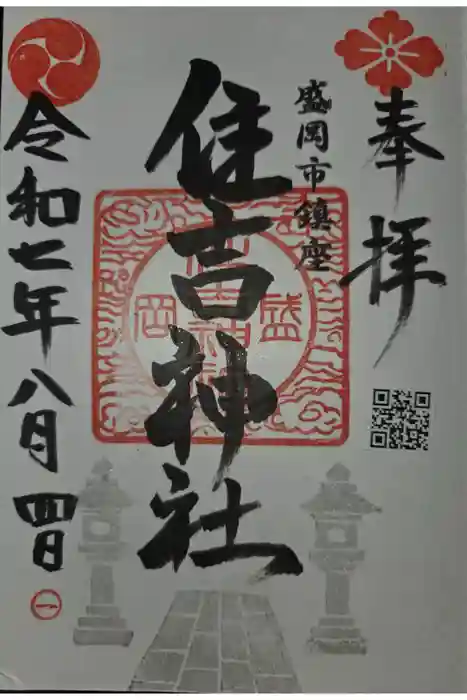 奉拝
盛岡市鎮座
住吉神社
令和七年八月四日
一
盛
岡